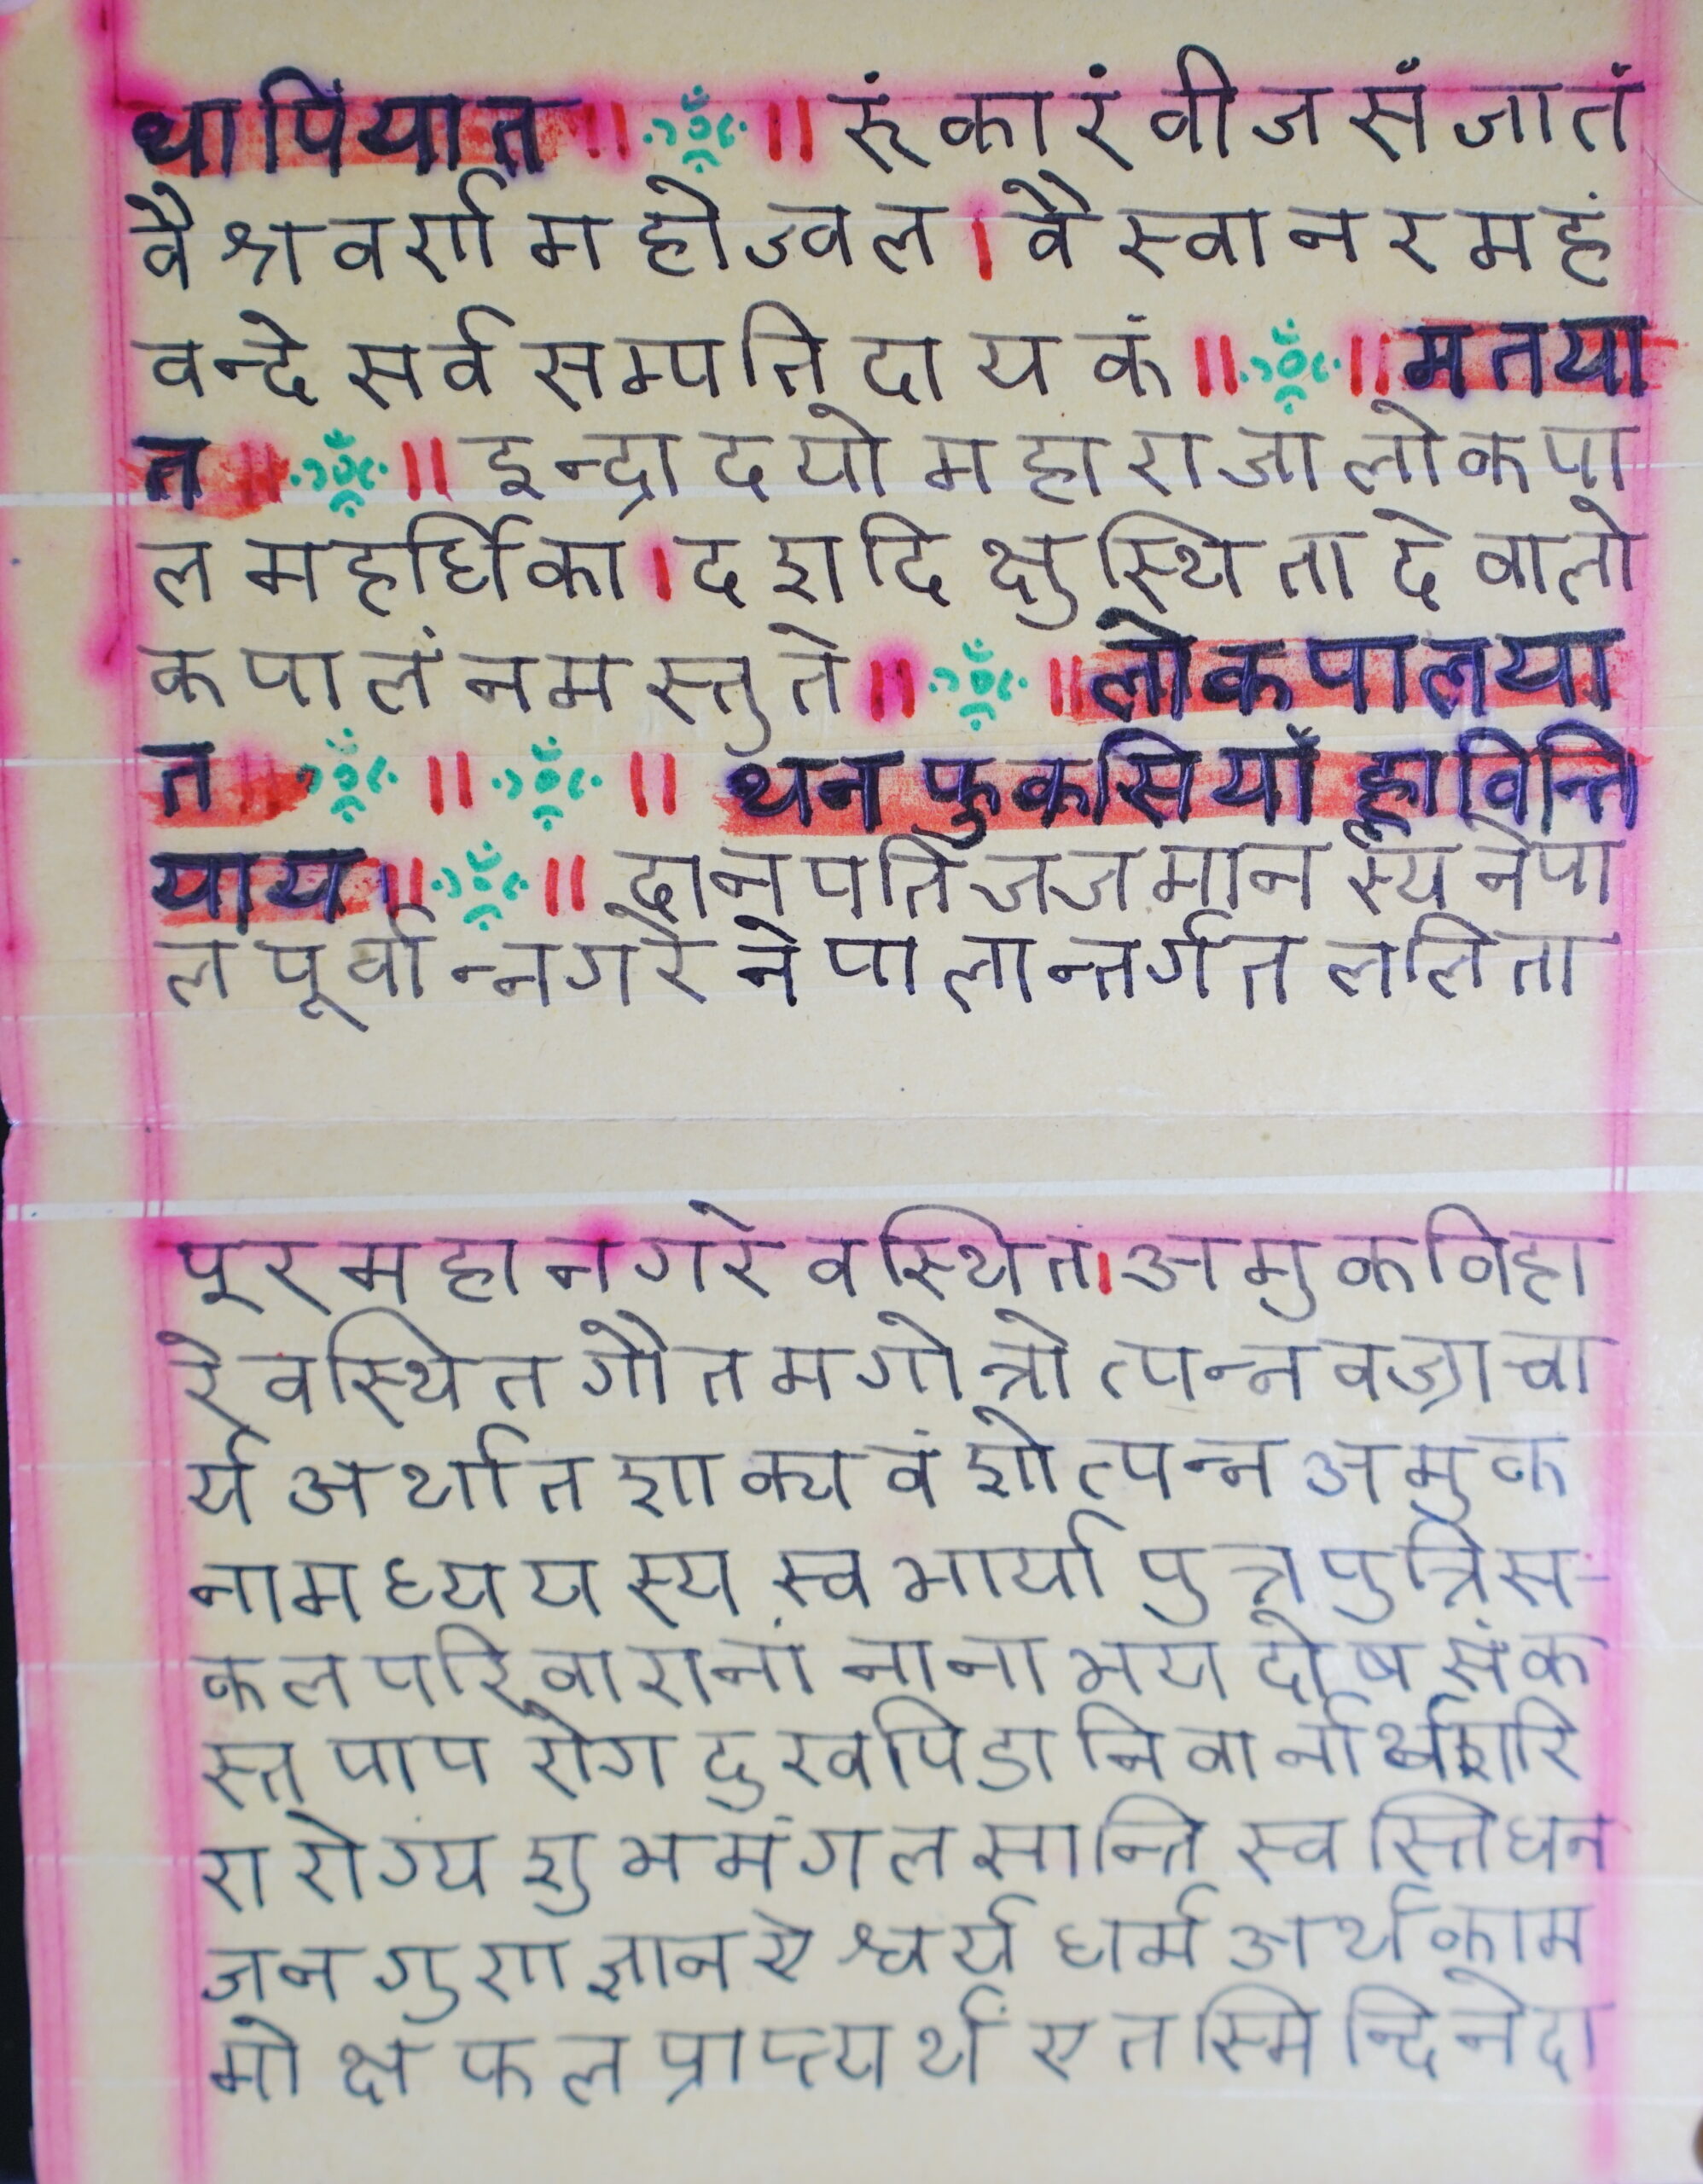 थापिंयात ॥ ॥ रुंकारंवीजसंजातं
वैश्रवर्णमहोज्वल । वैस्वानरमहं
वन्देसर्वसम्पतिदायकं ॥ ॥ मतया
त ॥ ॥ इन्द्रादयोमहाराजालोकपा
लमहर्धिका । दशदिक्षुस्थितादेवालो
कपालंनमस्तुते ॥ ॥ लोकपालया
त ॥ ॥ ॥ थनफुकसियाँ ह्नाविन्ति
याय ॥ ॥ दानपतिजजमानस्यनेपा
लपूर्वान्नगरेनेपालान्तर्गतललिता
पूरमहानगरेवस्थित । अमुकविहा
रेवस्थितगौतमगोत्रोत्पन्नवज्राचा
र्यअर्थातशाक्यवंशोत्पन्नअमुक
नामध्ययस्यस्वभार्यापुत्रपुत्रिस-
कलपरिवारानांनानाभयदोषसंक
स्तपापरोगदुखपिडानिवार्नार्थशरि
रारोग्यशुभमंगलसान्तिस्वस्तिधन
जनगुणज्ञानऐश्वर्यधर्मअर्थकाम
मोक्षफलप्राप्त्यर्थंएतस्मिन्दिनेदा